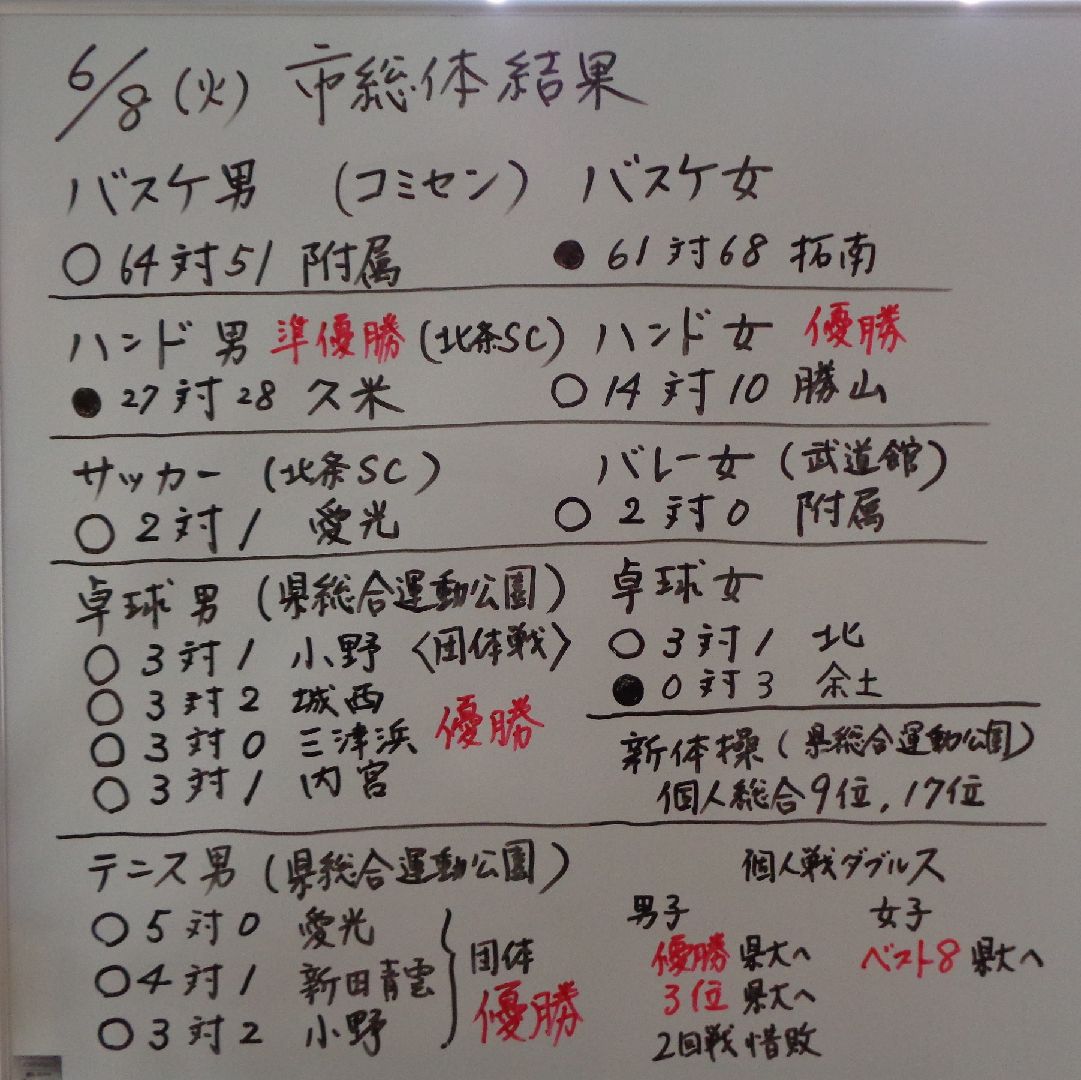 6/8(火) 市総体結果
バスケ男 (コミセン) バスケ女
○ 64対51 附属 ● 61対68 拓南
ハンド男 準優勝 (北条SC) ハンド女 優勝
● 27対28 久米 ○ 14対10 勝山
サッカー (北条SC) バレー女 (武道館)
○ 2対1 愛光 ○ 2対0 附属
卓球男 (県総合運動公園) 卓球女
○ 3対1 小野 〈団体戦〉 ○ 3対1 北
○ 3対2 城西 ● 0対3 余土
○ 3対0 三津浜 優勝
○ 3対1 内宮
新体操 (県総合運動公園)
個人総合9位, 17位
テニス男 (県総合運動公園) 個人戦ダブルス
○ 5対0 愛光
○ 4対1 新田青雲
○ 3対2 小野
団体
優勝
男子
優勝 県大へ
3位 県大へ
2回戦惜敗
女子
ベスト8 県大へ